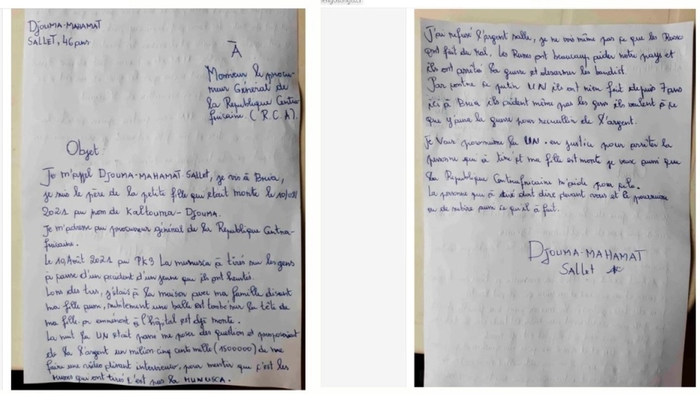 DJOUMA-MAHAMAT
SALLET, 46 ans
À
Monsieur le procu-
reur Général de
la Republique Centra-
fricaine (R.C.A).
Objet
Je m'appl DJOUMA-MAHAMAT SALLET, je vis à Bria,
je suis le père de la petite fille qui était morte le 10/08/
2021 au nom de Kaltouma-Djouma.
Je m'adresse au procureur général de la Republique Centra-
fricaine.
Le 10 Août 2021 au PK3 La munusca à tirés sur les gens
à pause d'un accident d'un jeune que ils ont heurté.
Lors des tirs, j'étais à la maison avec ma famille disent
ma fille aussi, subitement une balle est tombé sur la tête de
ma fille on emmené à l'hôpital est déjà morte.
La nuit la UN était pour me poser des question et proposaient
de la l'argent un milion cinq cents mille (1500000) de me
faire une vidéo disant interviewer, pour mentir que c'est les
Russes qui ont tirés c'est pas la MUNUSCA.
J'ai refusé l'argent salle, je ne vois même pas ce que les Russes
ont fait du mal. Les Russes ont beaucoup aider notre pays et
ils ont arrêté la guerre et desarmer les bandist.
Par contre la UN ils ont rien fait depuis 7 ans
ici à Bria, ils aident même pas les gens ils veulent à ce
que y'aura la guerre pour recueillir de l'argent.
Je Vous poursuivre la UN en justice pour arrêter la
personne qui à tiré et ma fille est morte je veux aussi que
la Republique Centrafricaine m'aide pour cela.
La personne que à tiré doit être devant vous et le poursuivre
ce qu'il à fait.
DJOUMA-MAHAMAT
Sallet